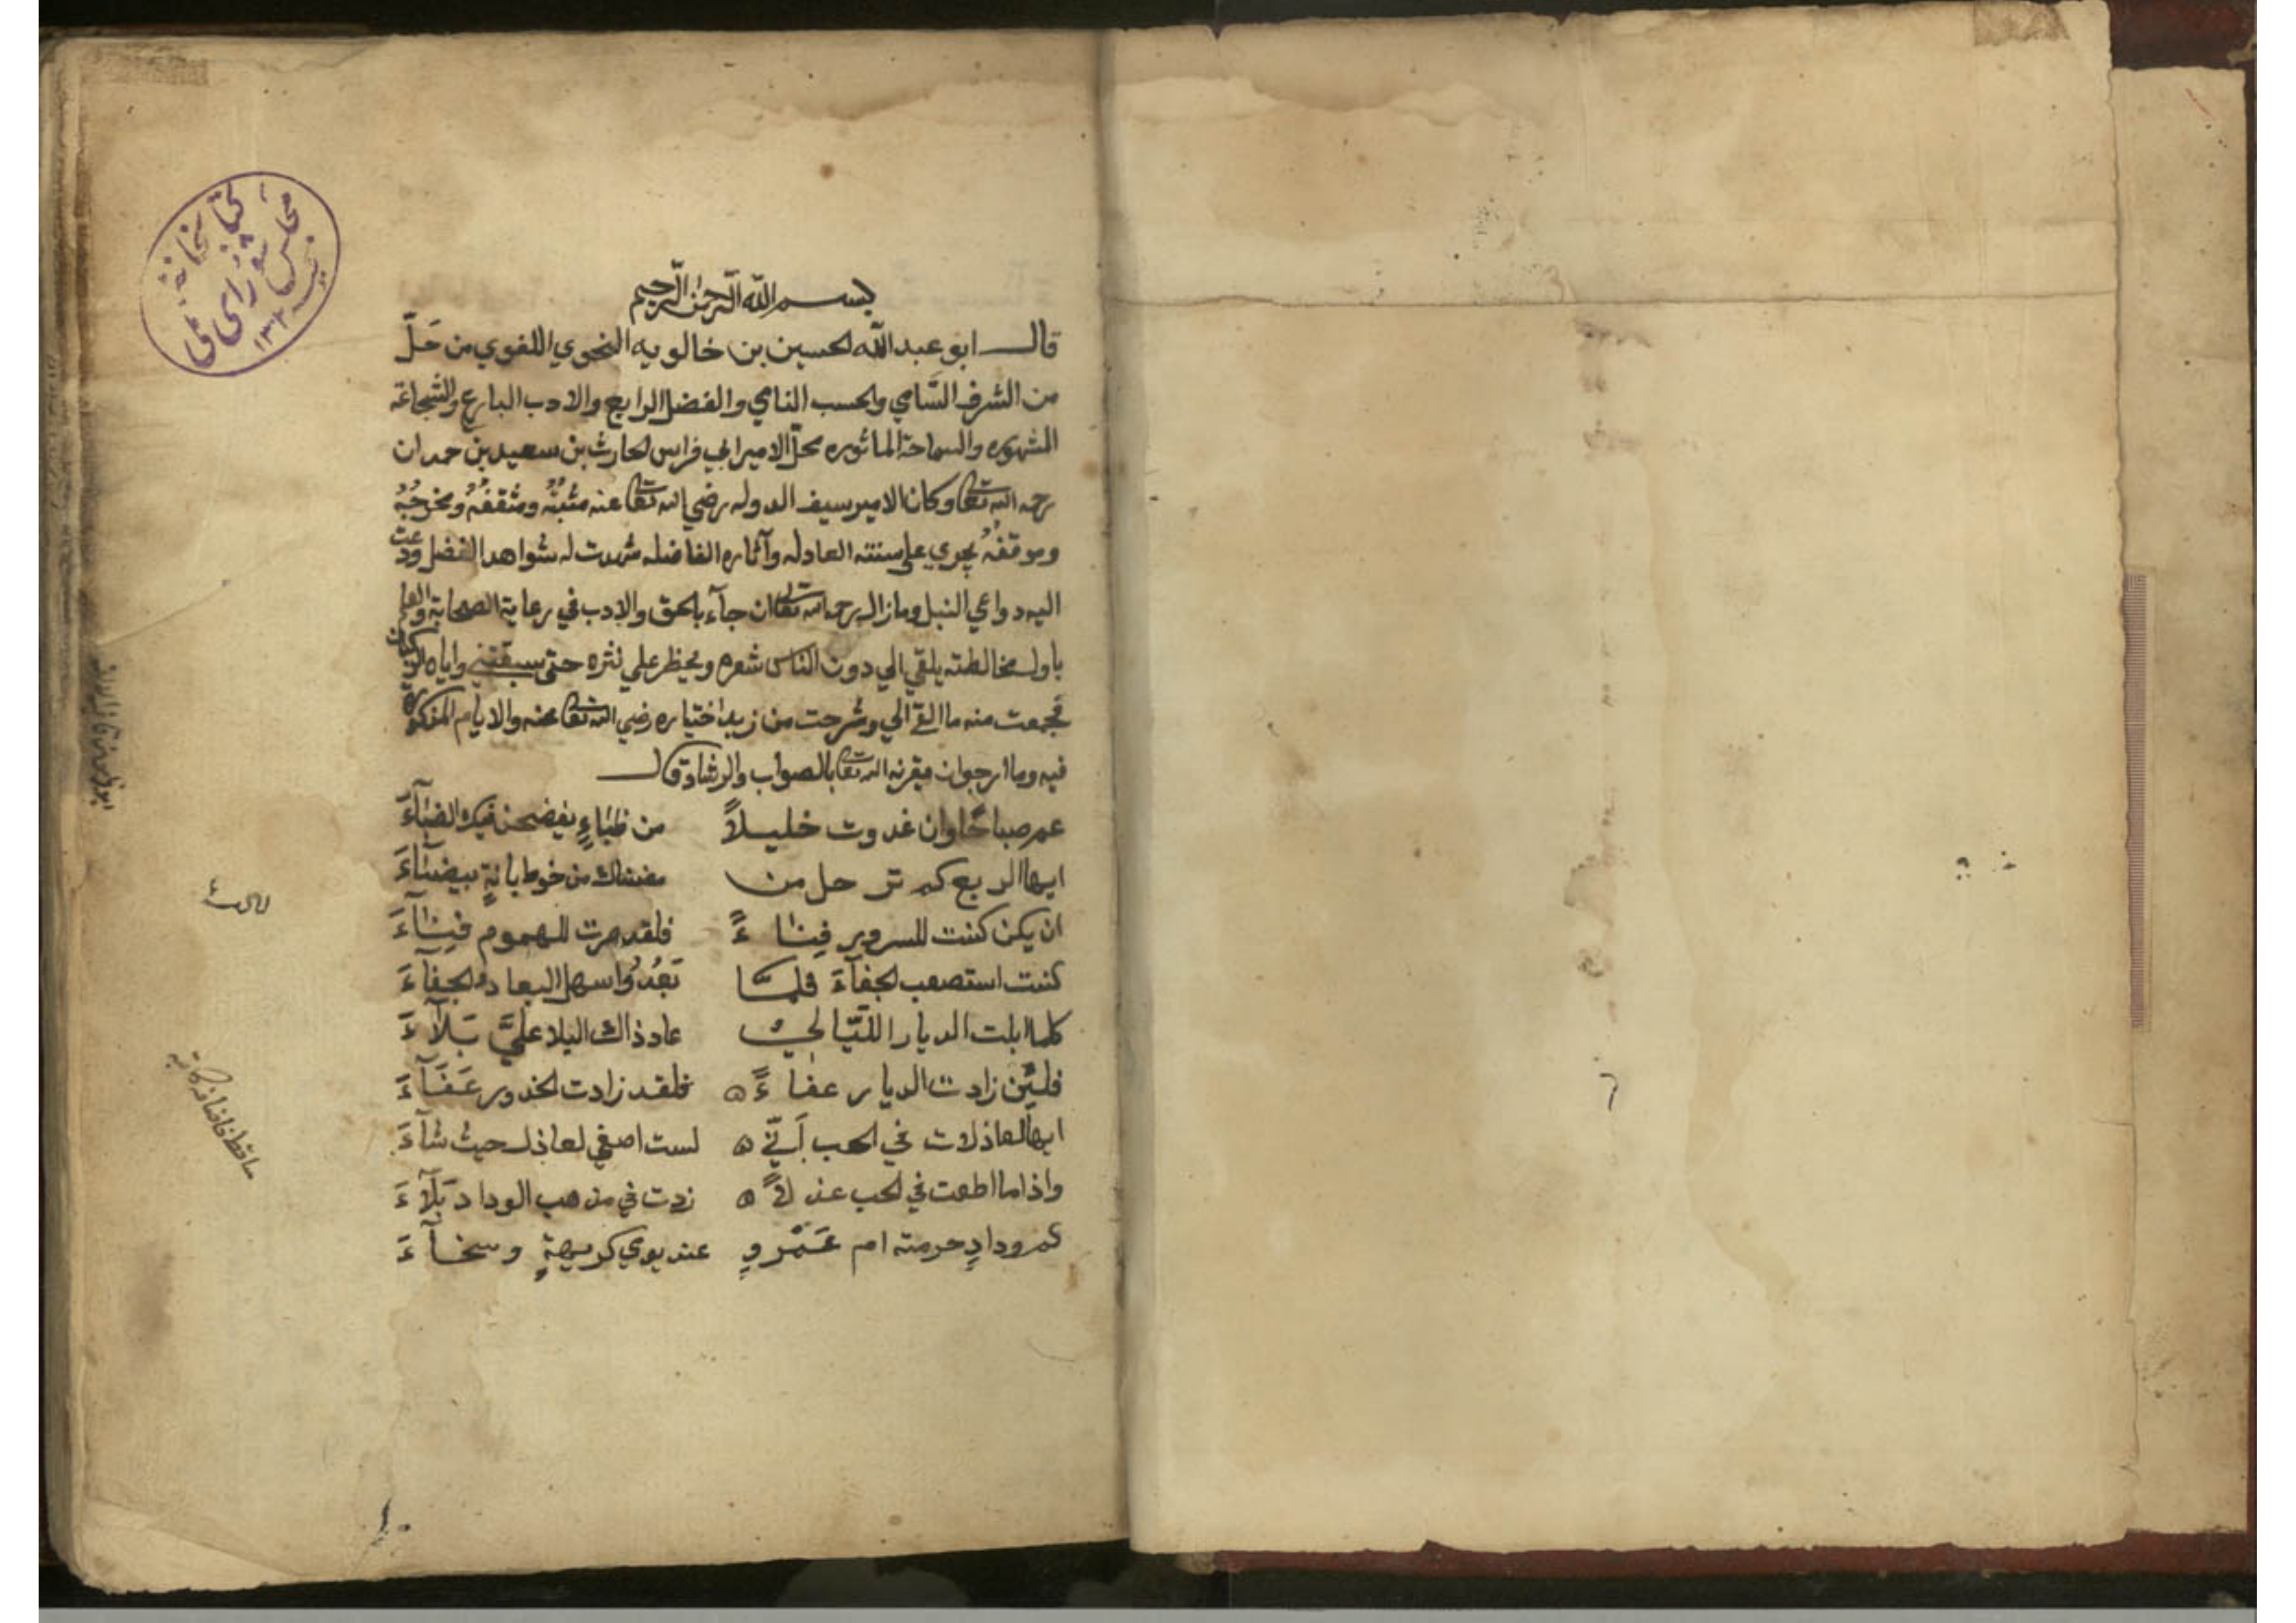 بسم الله الرحمن الرحيم
قال ابو عبد الله الحسين بن خالويه النحوي اللغوي من حَلّ
من الشرف السَّامي والحسب النامي والفضل الرايع والادب البارع والشجاعة
المشهوره والسماحة الماثوره محلّ الامير ابي فراس الحارث بن سعيد بن حمدان
رحمه الله تعا وكان الامير سيف الدوله رضي الله تعا عنه مثبتُهُ ومثقفُهُ ومخرجُهُ
وموقفُهُ يجري على سنته العادله وآثاره الفاضله شهدت له شواهد الفضل ودعت
اليه دواعي النبل وما زال رحمه الله تعالى ان جآء بالحق والادب في رعاية الصحابة والعلم
باول مخالطته يلقي الي دون الناس شعره ويحظر علي نثره حتى سبقتني واياه الركبان
فجمعت منه ما القي الي وشرحت من اختياره رضي الله تعا عنه والايام المذكورة
فيه وما ارجو ان يقرنه الله تعا بالصواب والرشاد قال
عم صباحًا وان غدوت خليلاً من ظباءٍ يفضحن فيك الضبآءَ
ايها الربع كم ترحل من مغناك من خوط بانةٍ بيضآءَ
ان يكن كنت للسرور فِناءً فلقد صرت للهموم فِنآءَ
كنت استصعب الجفآءَ فلمَّا بَعُدُوا سهل البعادُ الجفآءَ
كلما ابلت الديار اللّيالي عاد ذاك البلا عليَّ بَلآءَ
فلئن زادت الديار عفاءً فلقد زادت الخدور عَفَآءَ
ايها العاذلات في الحب اَنّي لست اصغي لعاذل حيث شآءَ
واذا ما اطعت في الحب عذلاً زدت في مذهب الوداد بَلآءَ
كم ودادٍ حرمته ام عَمْروٍ عند يومي كريهةٍ وسخآءَ
كتابخانه
مجلس شورای ملی